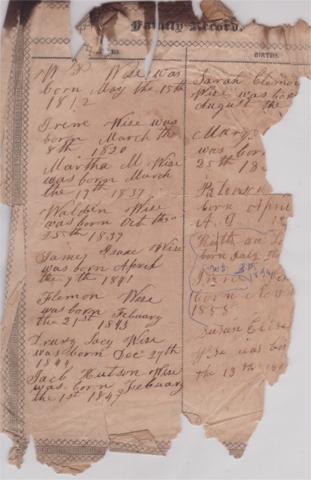 Family Record.
BIRTHS.
W P Wise was
born May the 15th
1812
Irene Wise was
born March the
8th 1820
Martha M Wise
was born March
the 17th 1837
Walden Wise
was born Oct the
25th 1839
James Isaac Wise
was born April
the 9th 1841
Flemon Wise
was born
the 21st Febuary 1843
Drury Lacy Wise
was born Dec 27th
1844
Jack Hutson Wise
was born Feebuary
the 1st 1847
Sarah Elenor
Wise was bor
august the
Mary
was born
25th 18
born April
A. D
Ruth an
born July
born
1855
Susan Eliza
Wise was bor
the 13th